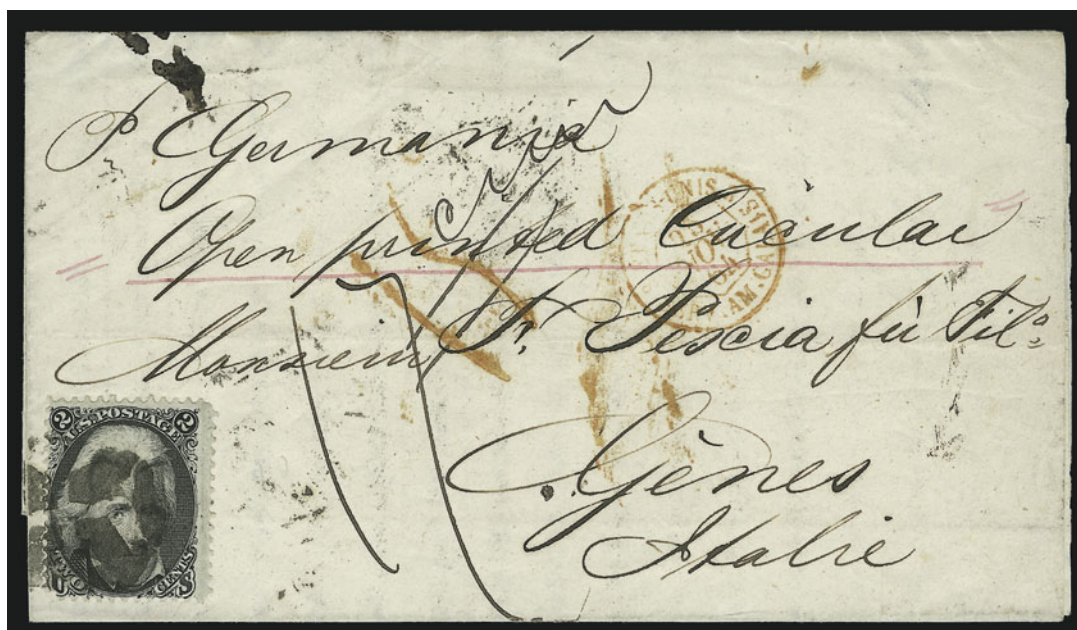 Pr Germania
Open printed Circular
Monsieur Fr. Pescia fù Filo
Gênes
Italie
2 U.S. POSTAGE 2
U TWO CENTS S